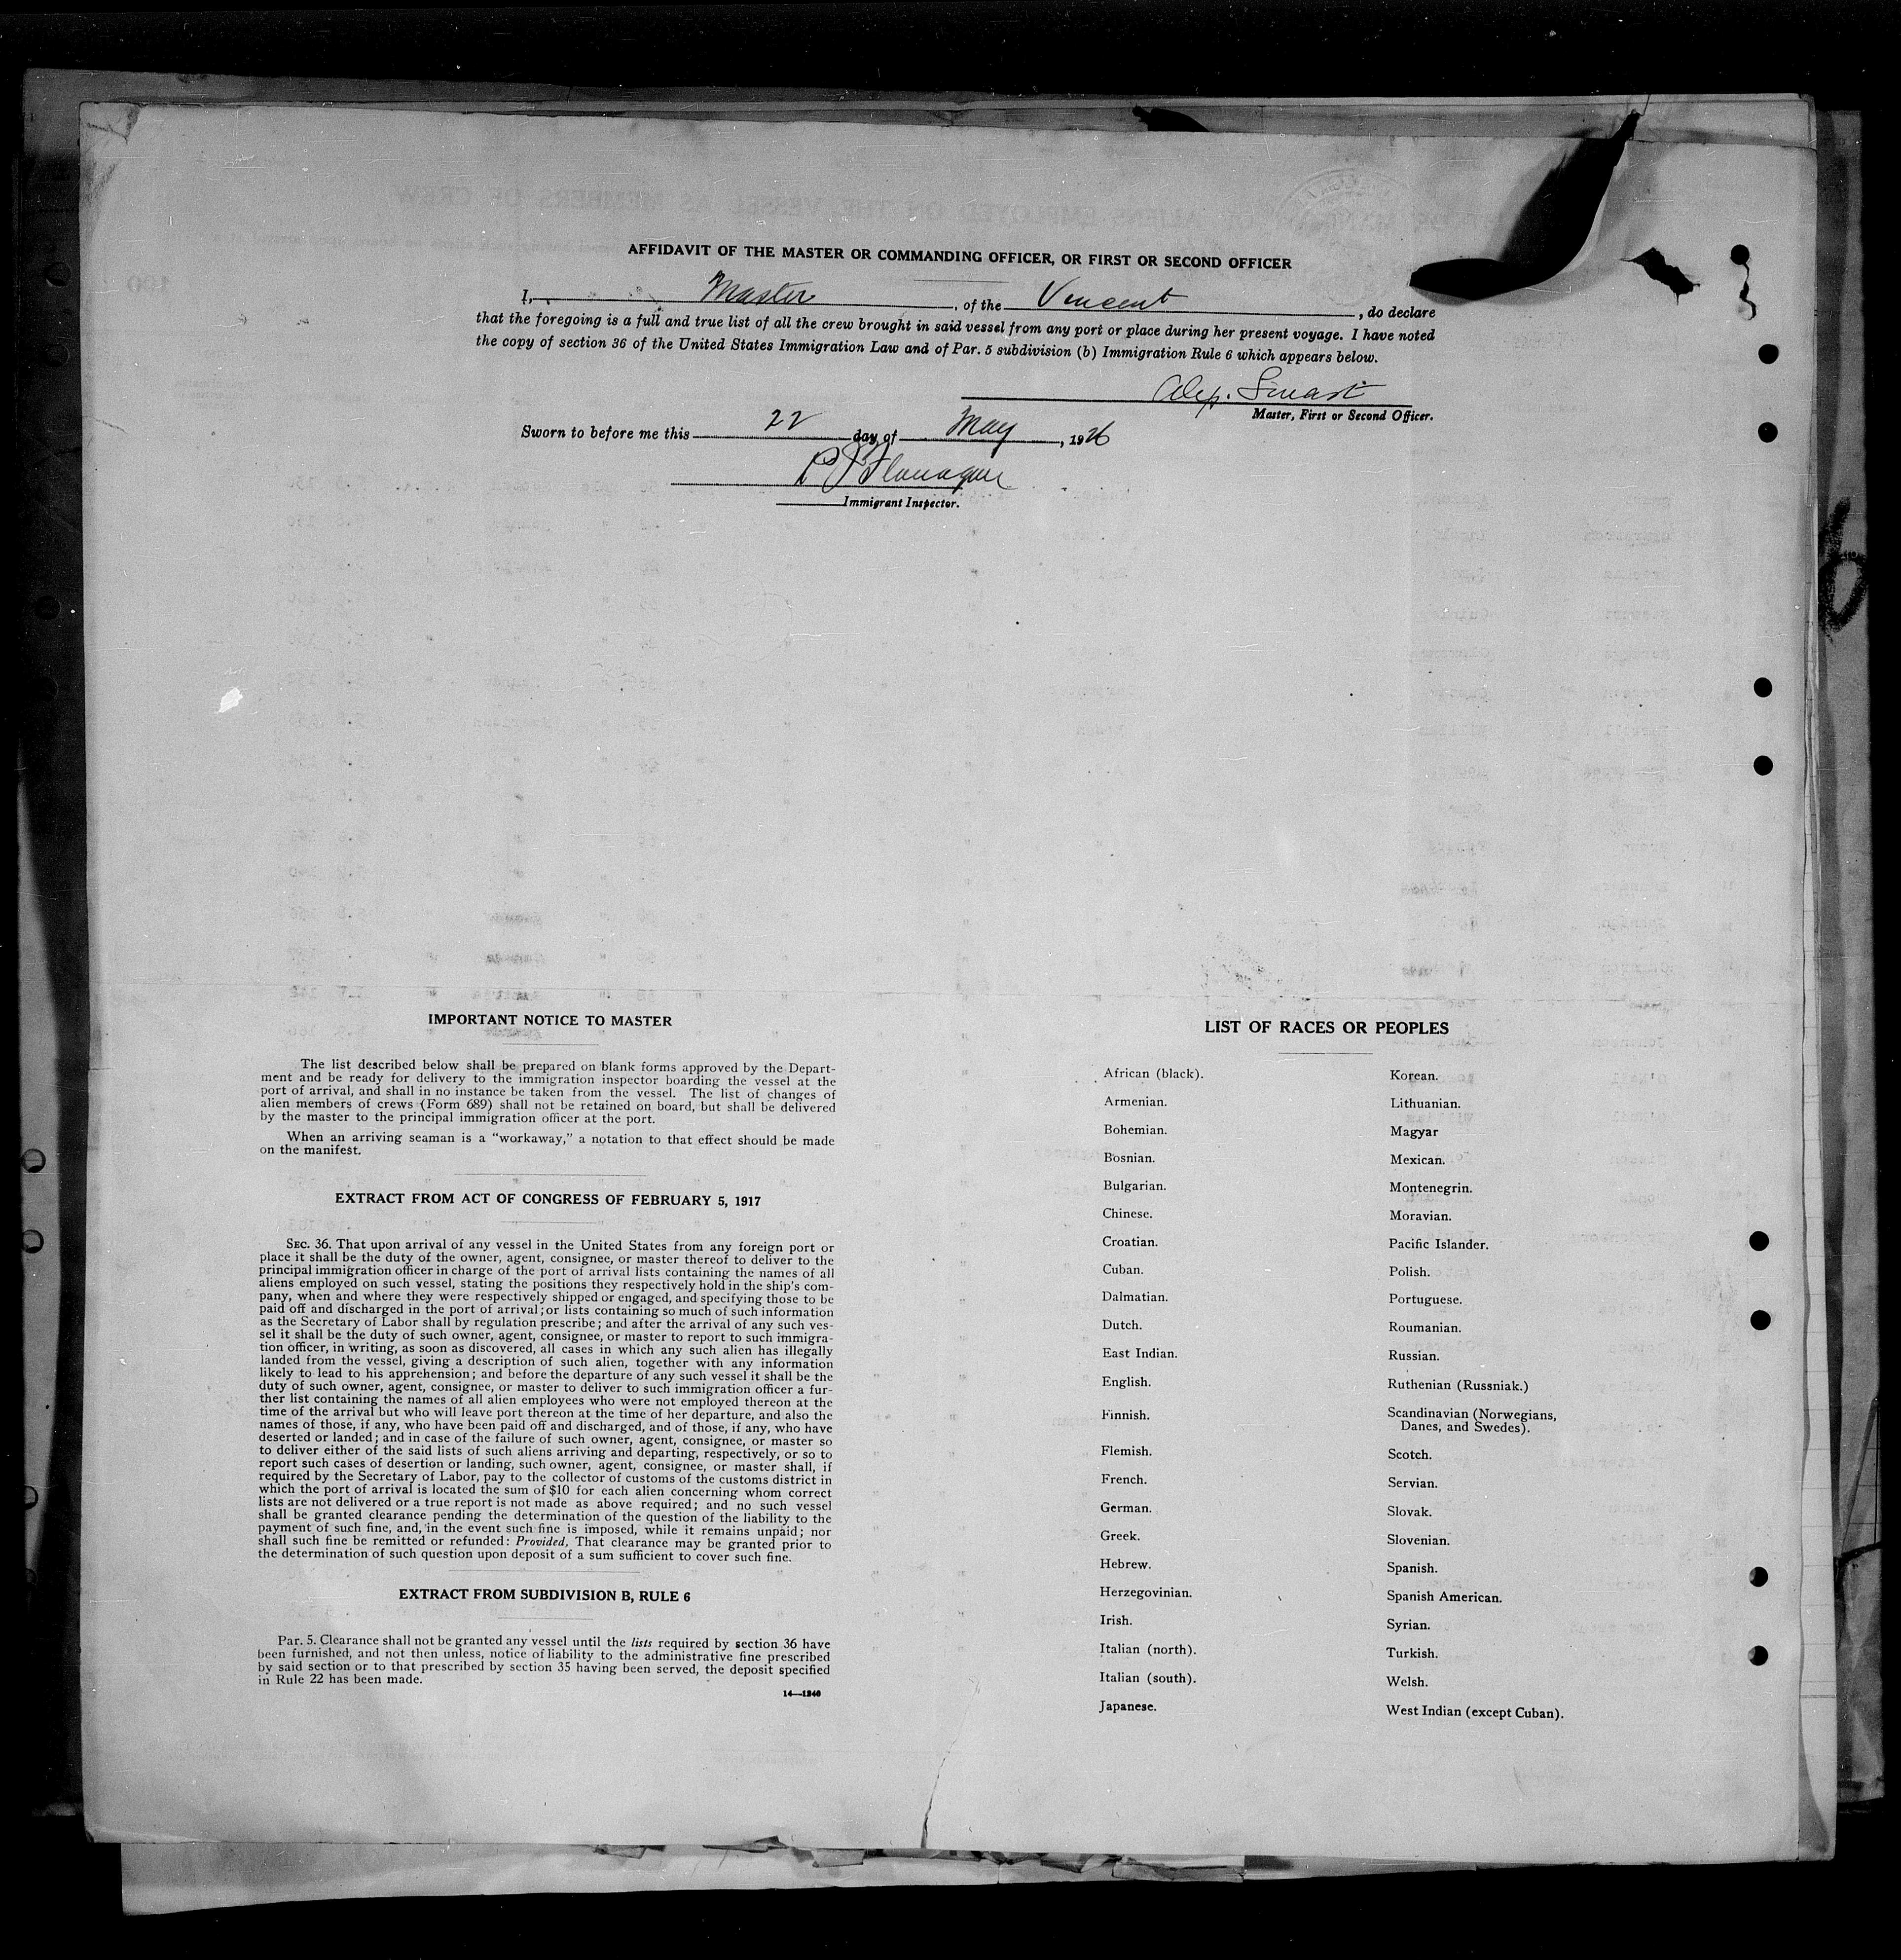 AFFIDAVIT OF THE MASTER OR COMMANDING OFFICER, OR FIRST OR SECOND OFFICER
I, Master, of the Vincent, do declare
that the foregoing is a full and true list of all the crew brought in said vessel from any port or place during her present voyage. I have noted
the copy of section 36 of the United States Immigration Law and of Par. 5 subdivision (b) Immigration Rule 6 which appears below.
Alex. Smart
Master, First or Second Officer.
Sworn to before me this 22 day of May, 1926
P J Flanagan
Immigrant Inspector.
IMPORTANT NOTICE TO MASTER
The list described below shall be prepared on blank forms approved by the Depart-
ment and be ready for delivery to the immigration inspector boarding the vessel at the
port of arrival, and shall in no instance be taken from the vessel. The list of changes of
alien members of crews (Form 689) shall not be retained on board, but shall be delivered
by the master to the principal immigration officer at the port.
When an arriving seaman is a "workaway," a notation to that effect should be made
on the manifest.
EXTRACT FROM ACT OF CONGRESS OF FEBRUARY 5, 1917
SEC. 36. That upon arrival of any vessel in the United States from any foreign port or
place it shall be the duty of the owner, agent, consignee, or master thereof to deliver to the
principal immigration officer in charge of the port of arrival lists containing the names of all
aliens employed on such vessel, stating the positions they respectively hold in the ship's com-
pany, when and where they were respectively shipped or engaged, and specifying those to be
paid off and discharged in the port of arrival; or lists containing so much of such information
as the Secretary of Labor shall by regulation prescribe; and after the arrival of any such ves-
sel it shall be the duty of such owner, agent, consignee, or master to report to such immigra-
tion officer, in writing, as soon as discovered, all cases in which any such alien has illegally
landed from the vessel, giving a description of such alien, together with any information
likely to lead to his apprehension; and before the departure of any such vessel it shall be the
duty of such owner, agent, consignee, or master to deliver to such immigration officer a fur-
ther list containing the names of all alien employees who were not employed thereon at the
time of the arrival but who will leave port thereon at the time of her departure, and also the
names of those, if any, who have been paid off and discharged, and of those, if any, who have
deserted or landed; and in case of the failure of such owner, agent, consignee, or master so
to deliver either of the said lists of such aliens arriving and departing, respectively, or so to
report such cases of desertion or landing, such owner, agent, consignee, or master shall, if
required by the Secretary of Labor, pay to the collector of customs of the customs district in
which the port of arrival is located the sum of $10 for each alien concerning whom correct
lists are not delivered or a true report is not made as above required; and no such vessel
shall be granted clearance pending the determination of the question of the liability to the
payment of such fine, and, in the event such fine is imposed, while it remains unpaid; nor
shall such fine be remitted or refunded: Provided, That clearance may be granted prior to
the determination of such question upon deposit of a sum sufficient to cover such fine.
EXTRACT FROM SUBDIVISION B, RULE 6
Par. 5. Clearance shall not be granted any vessel until the lists required by section 36 have
been furnished, and not then unless, notice of liability to the administrative fine prescribed
by said section or to that prescribed by section 35 having been served, the deposit specified
in Rule 22 has been made.
14—1240
LIST OF RACES OR PEOPLES
African (black).
Armenian.
Bohemian.
Bosnian.
Bulgarian.
Chinese.
Croatian.
Cuban.
Dalmatian.
Dutch.
East Indian.
English.
Finnish.
Flemish.
French.
German.
Greek.
Hebrew.
Herzegovinian.
Irish.
Italian (north).
Italian (south).
Japanese.
Korean.
Lithuanian.
Magyar
Mexican.
Montenegrin.
Moravian.
Pacific Islander.
Polish.
Portuguese.
Roumanian.
Russian.
Ruthenian (Russniak.)
Scandinavian (Norwegians,
Danes, and Swedes).
Scotch.
Servian.
Slovak.
Slovenian.
Spanish.
Spanish American.
Syrian.
Turkish.
Welsh.
West Indian (except Cuban).